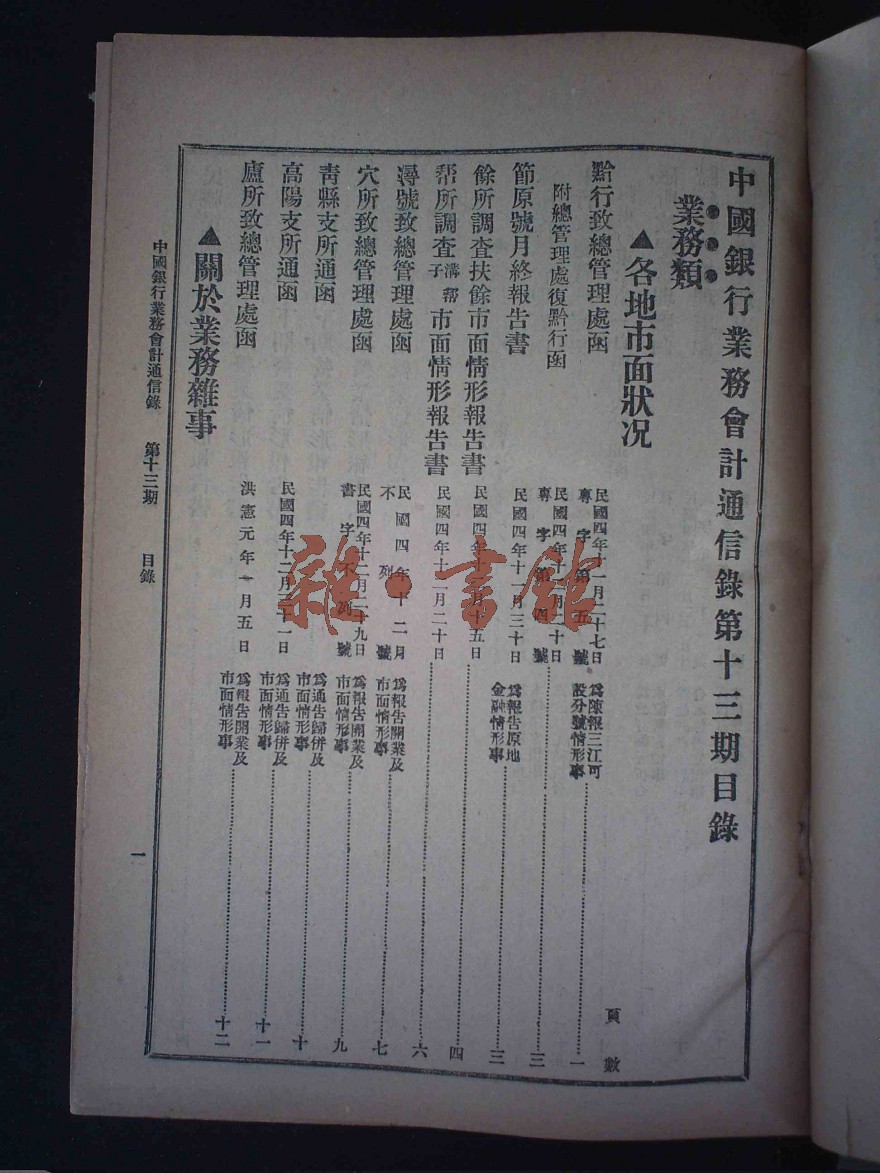 中國銀行業務會計通信錄第十三期目錄
業務類
▲各地市面狀况
頁數
黔行致總管理處函 民國四年十一月二十七日專字第五號 爲陳報三江可設分號情形事 一
附總管理處復黔行函 民國四年十二月二十日專字第四號 三
節原號月終報告書 民國四年十一月三十日 爲報告原地金融情形事 三
餘所調查扶餘市面情形報告書 民國四年十一月十五日 四
帮所調查溝帮子市面情形報告書 民國四年十二月二十日 六
潯號致總管理處函 民國四年十二月不列號 爲報告開業及市面情形事 七
穴所致總管理處函 民國四年十二月二十九日書字不列號 爲報告開業及市面情形事 九
靑縣支所通函 爲通告歸併及市面情形事 十
高陽支所通函 民國四年十二月二十一日 爲通告歸併及市面情形事 十一
廬所致總管理處函 洪憲元年一月五日 爲報告開業及市面情形事 十二
▲關於業務雜事
中國銀行業務會計通信錄 第十三期 目錄
一
雜·書館